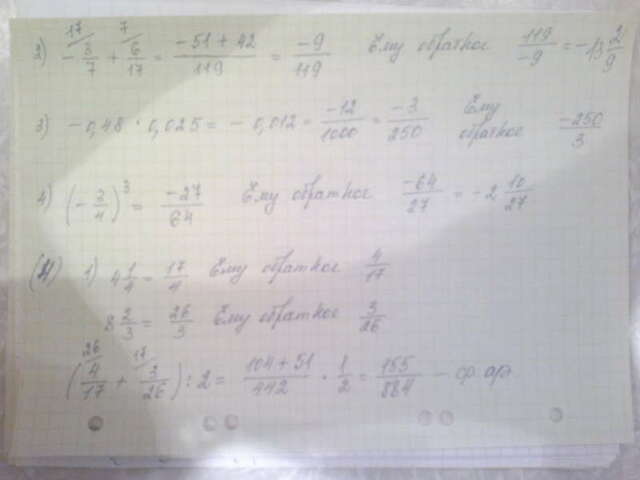 17 7
2) -3/7 + 6/17 = (-51 + 42)/119 = -9/119 Ему обратное 119/-9 = -13 2/9
3) -0,48 · 0,025 = -0,012 = -12/1000 = -3/250 Ему обратное -250/3
4) (-3/4)^3 = -27/64 Ему обратное -64/27 = -2 10/27
1) 4 1/4 = 17/4 Ему обратное 4/17
8 2/3 = 26/3 Ему обратное 3/26
26 17
(4/17 + 3/26) : 2 = (104 + 51)/442 · 1/2 = 155/884 - ср. ар.